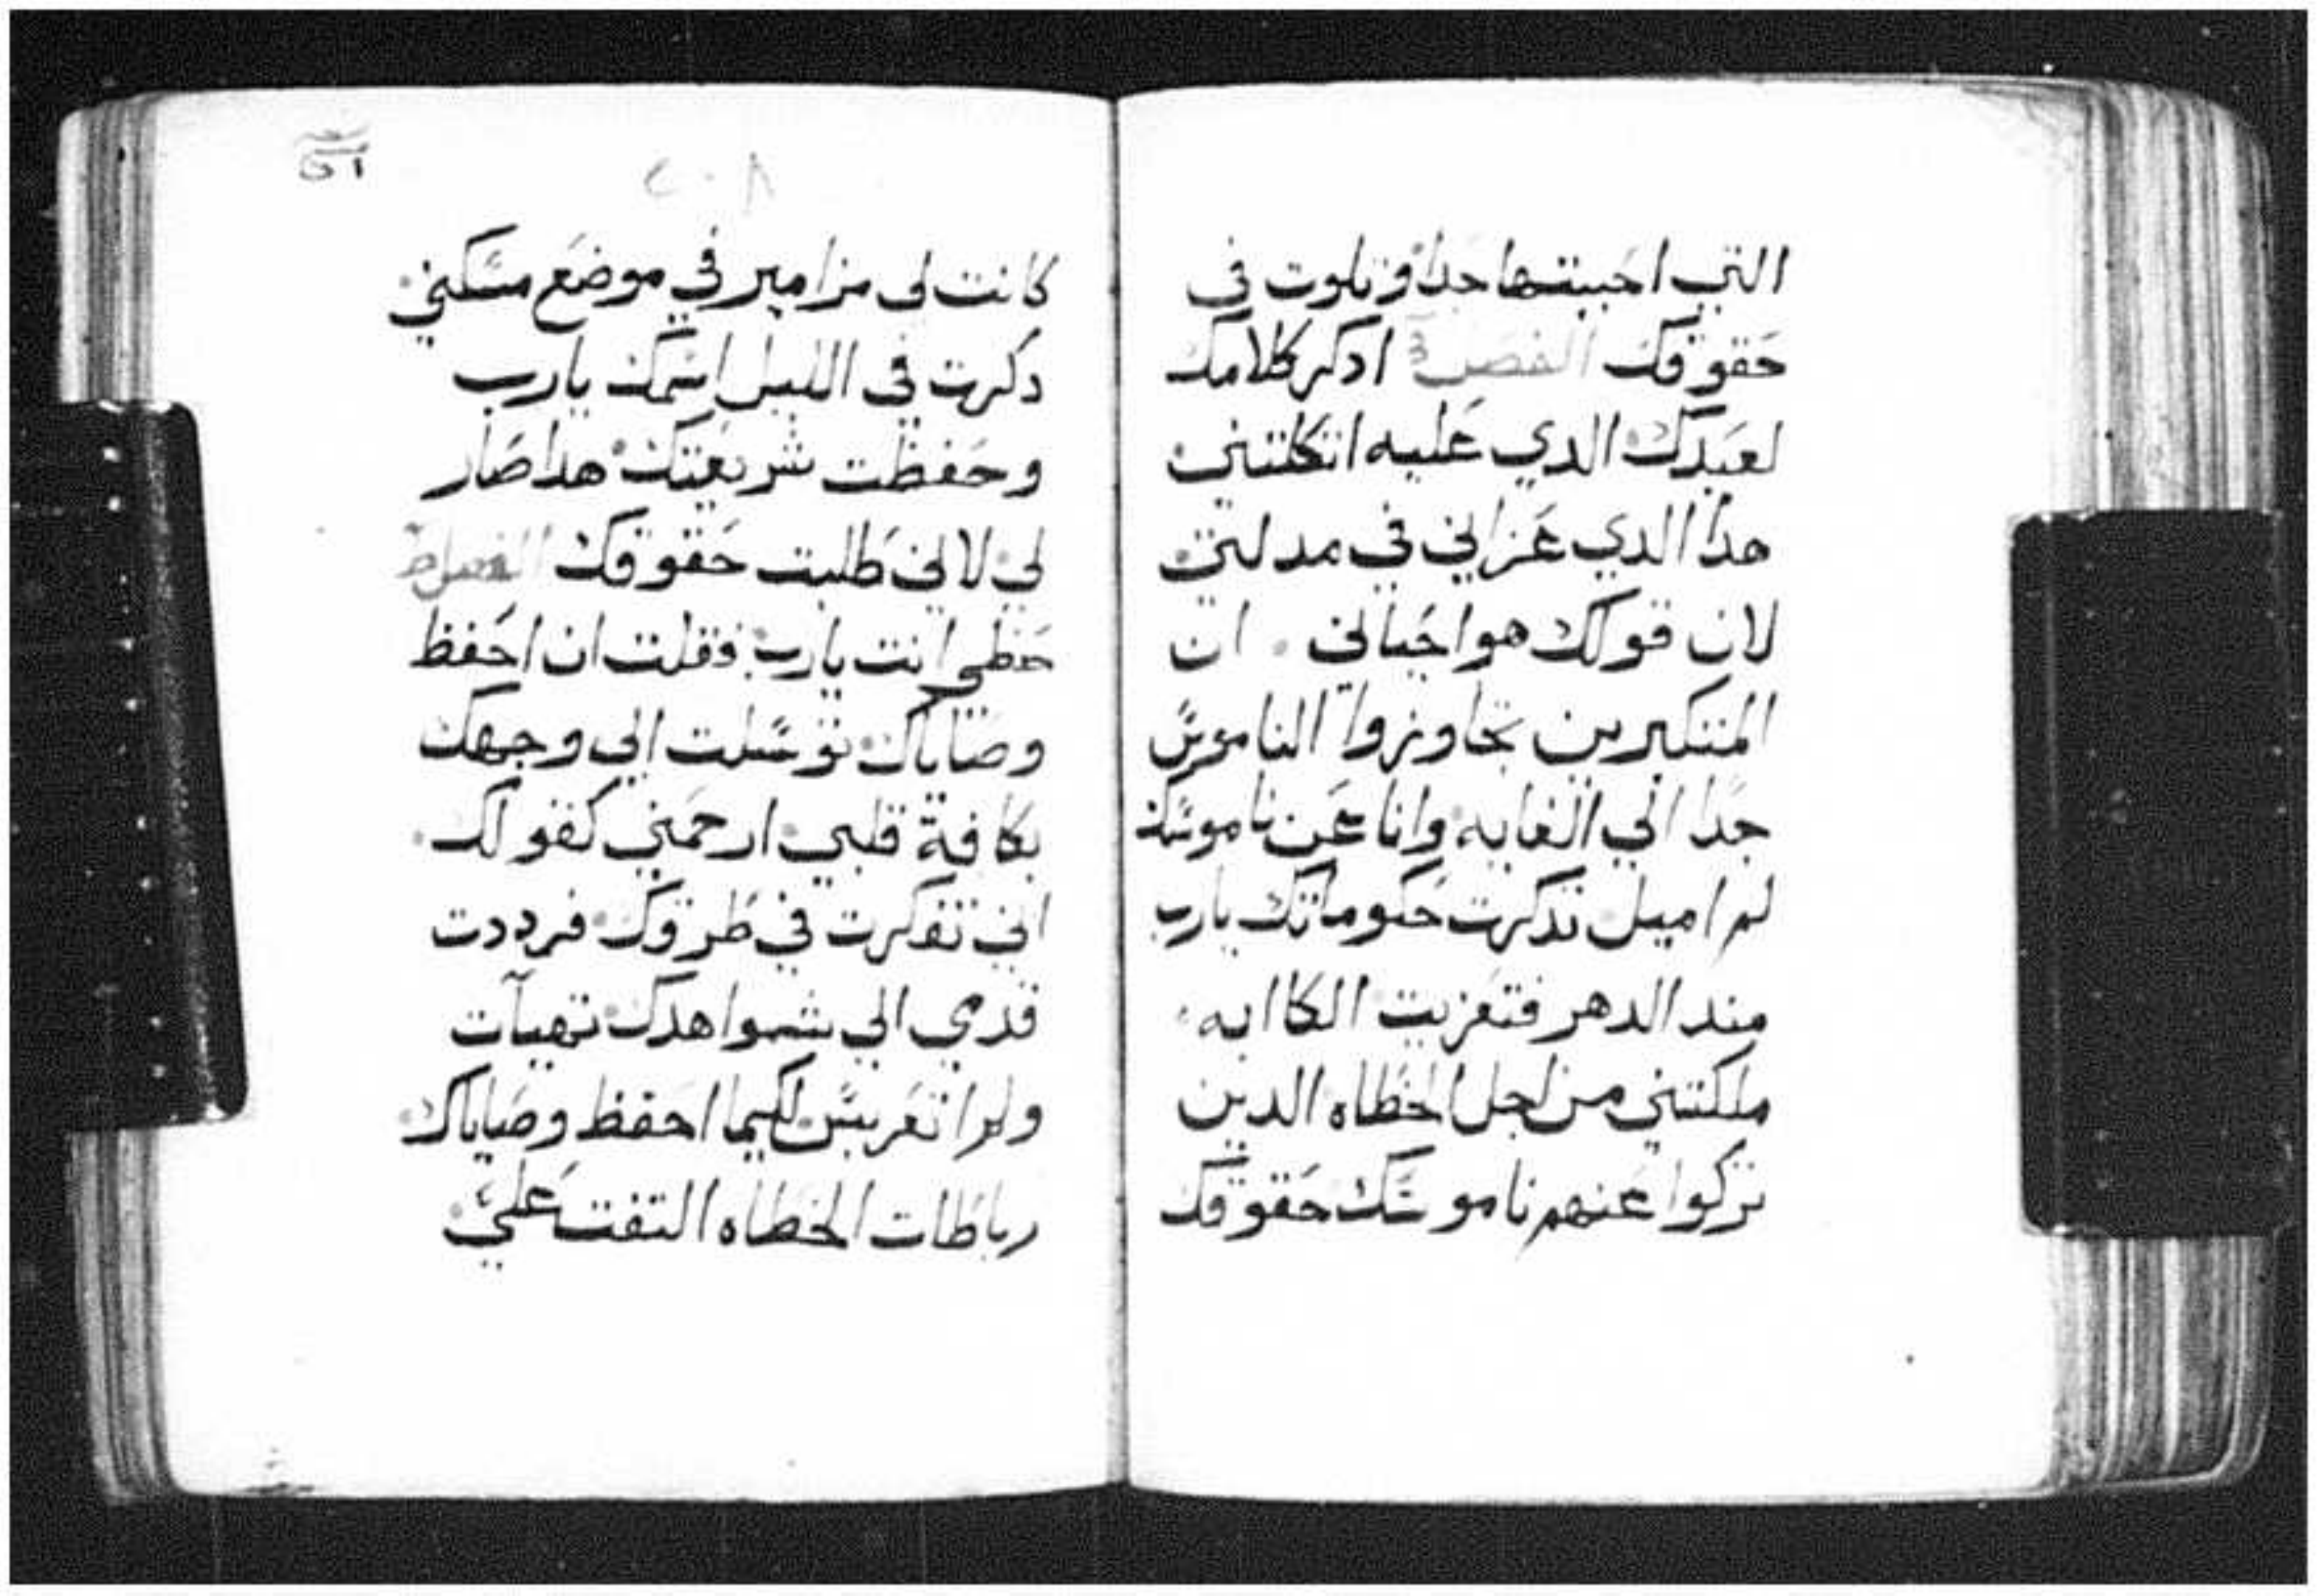 التي احببتها جدا وتلوت في
حقوقك الفصل ادكر كلامك
لعبدك الدي عليه اتكلتني
هدا الدي عزاني في مدلتي
لان قولك هو احياني . ان
المتكبرين تجاوزوا الناموس
جدا الي الغايه وانا عن ناموسك
لم اميل تدكرت حكوماتك يارب
مند الدهر فتعزيت الكاابه
ملكتني من اجل الخطاه الدين
تركوا عنهم ناموسك حقوقك
٢٠٨
كانت لي مزامير في موضع مسكني
دكرت في الليل اسمك يارب
وحفظت شريعتك هدا صار
لي لاني طلبت حقوقك الفصل
حظي انت يارب فقلت ان احفظ
وصاياك توسلت الي وجهك
بكافة قلبي ارحمني كقولك
اني تفكرت في طروقك فرددت
قدمي الي شواهدك تهيآت
ولم اتعربس لكيما احفظ وصاياك
رباطات الخطاه التفت علي